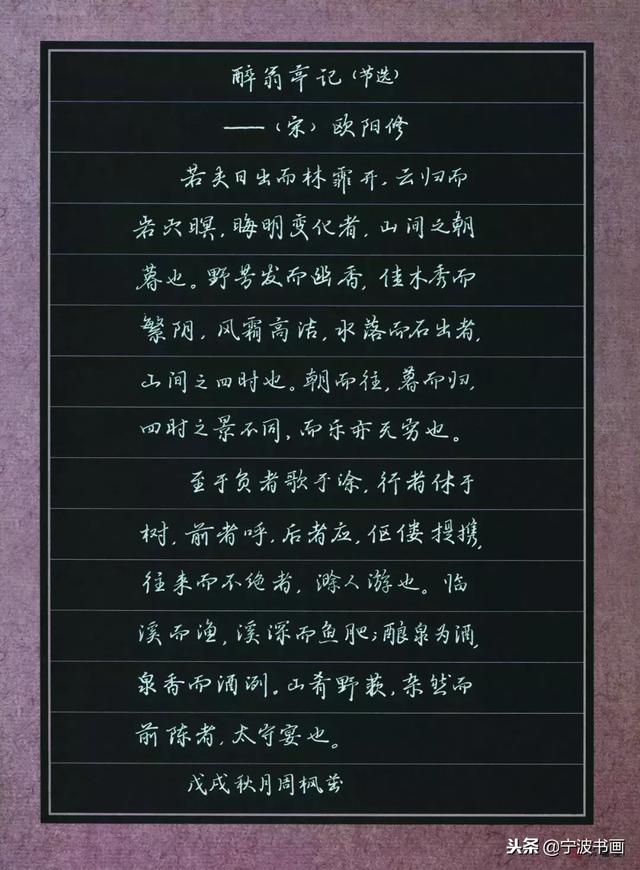 醉翁亭记（节选）
——（宋）欧阳修
若夫日出而林霏开，云归而
岩穴暝，晦明变化者，山间之朝
暮也。野芳发而幽香，佳木秀而
繁阴，风霜高洁，水落而石出者，
山间之四时也。朝而往，暮而归，
四时之景不同，而乐亦无穷也。
至于负者歌于涂，行者休于
树，前者呼，后者应，伛偻提携，
往来而不绝者，滁人游也。临
溪而渔，溪深而鱼肥；酿泉为酒，
泉香而酒冽。山肴野蔌，杂然而
前陈者，太守宴也。
戊戌秋月周枫
头条@宁波书画